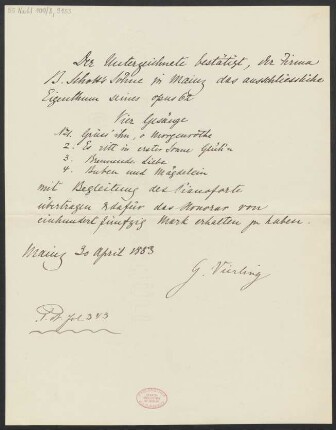 Der Unterzeichnete bestätigt, der Firma
B. Schott's Söhne in Mainz das ausschliessliche
Eigenthum seines opus 62
Vier Gesänge
No 1. Grüss' ihn, o Morgenröthe
2. Es ritt in erster Sonne
3. Brennende Liebe
4. Buben und Mägdelein
mit Begleitung des Pianoforte
übertragen & dafür das Honorar von
einhundert fünfzig Mark erhalten zu haben.
Mainz 30 April 1883
G. Vierling
fol 343